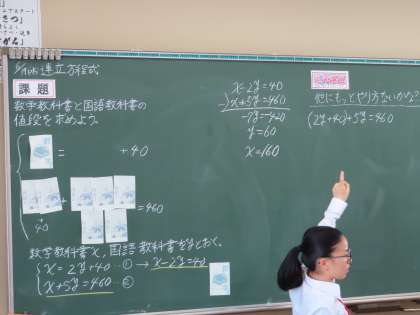 連立方程式
課題
数学教科書と国語教科書の
値段を求めよう。
= +40
+
40
=460
数学教科書x, 国語教科書をyとおく。
x=2y+40 ① → x-2y=40
x+5y=460 ②
x-2y=40
-)x+5y=460
-7y=-420
y=60
x=160
他にもっとやり方ないかな?
(2y+40)+5y=460